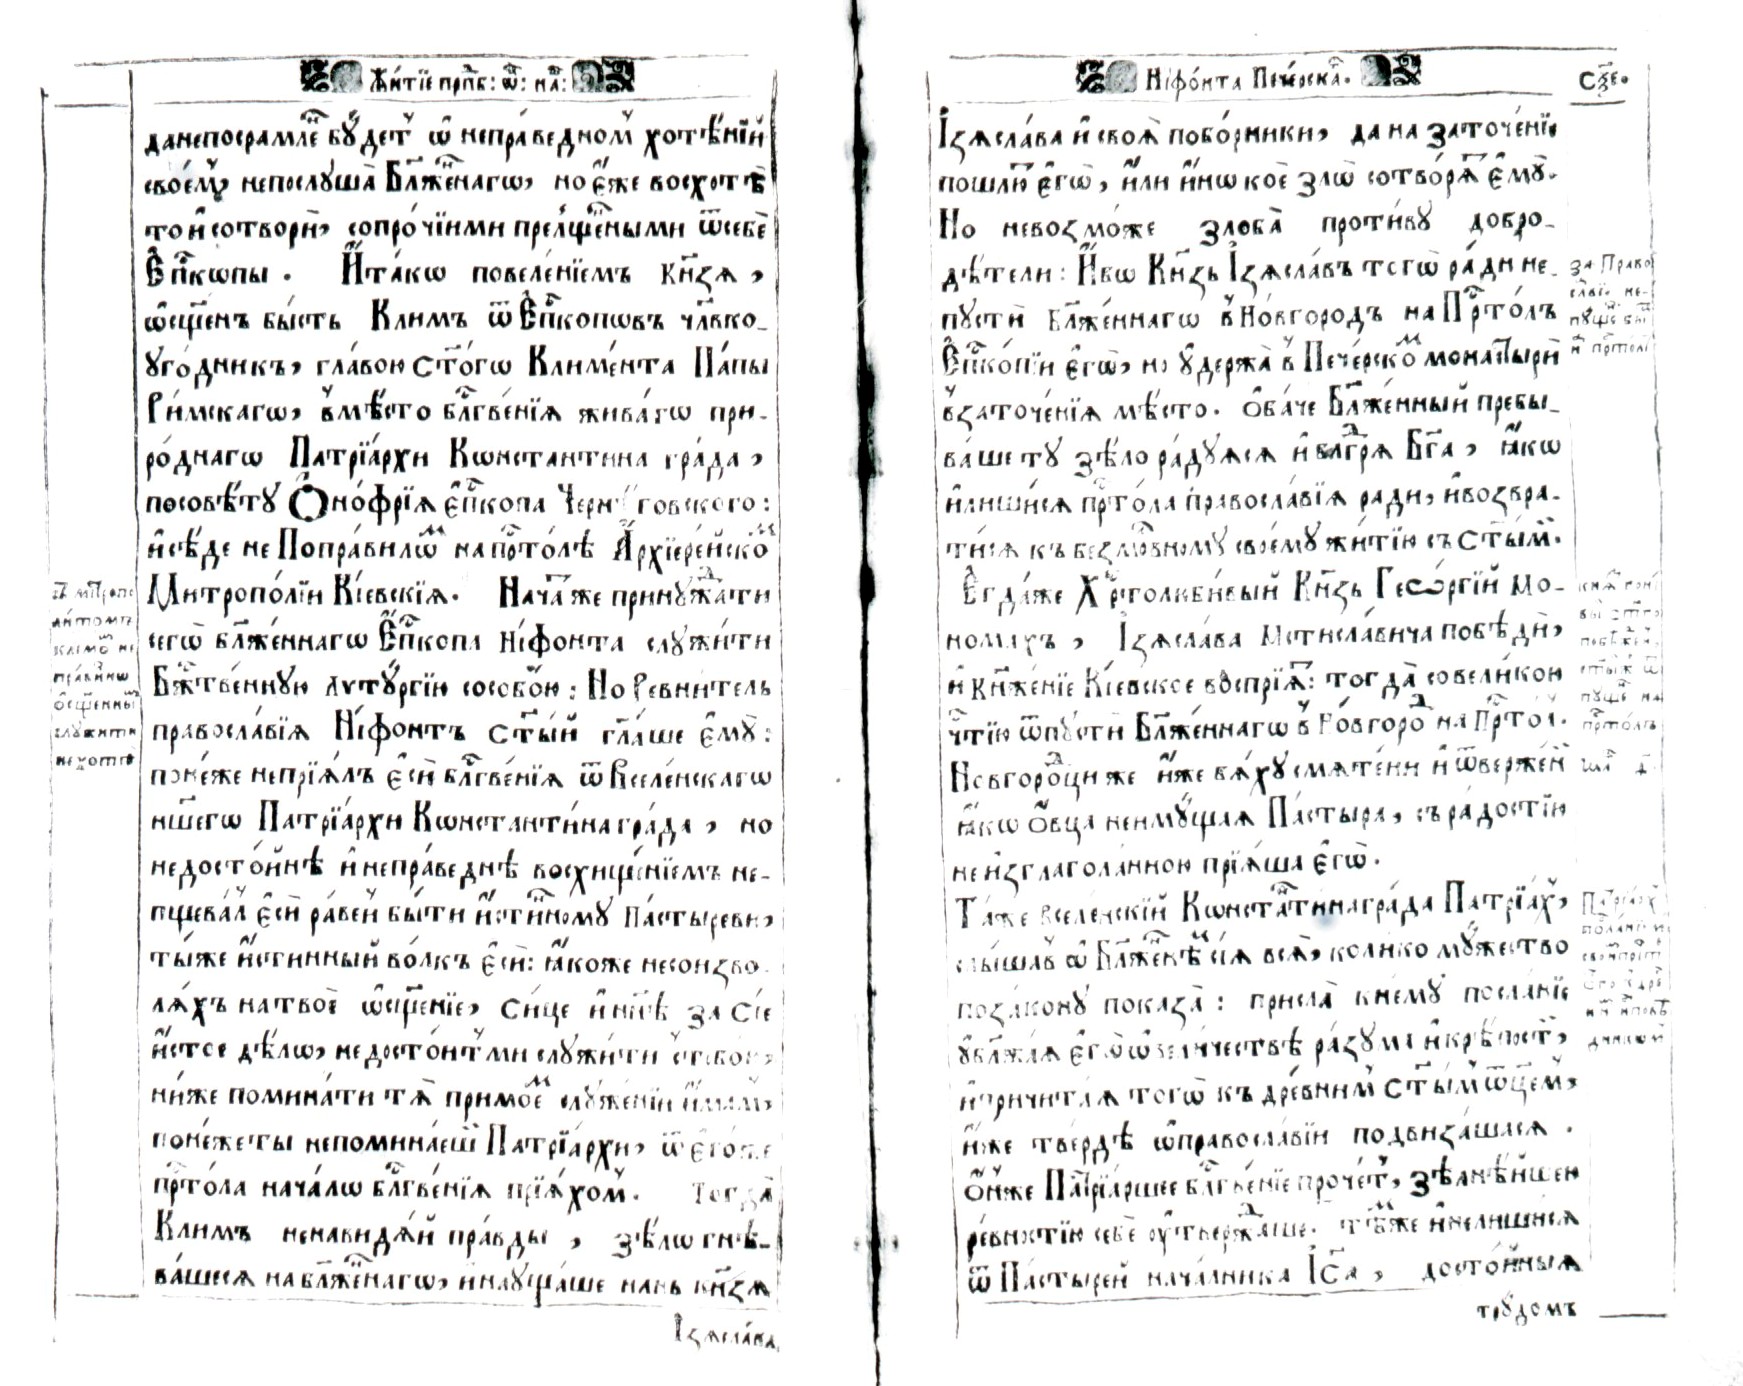 Житїе прпⷣб: ѿ: на́:
данепосрамле́нъ бꙋ́детъ ѡ непра́ведномъ хотѣ́нїй
свое́мꙋ, непослꙋша̀ Блⷤже́ннагѡ, но є́же восхотѣ̀
то и҆ сотворѝ, сопро́чїими прелще́нными ѿсебѐ
Є҆пⷭ҇кѡпы . И҆та́кѡ повеле́нїемъ кн҃зѧ,
ѡ҆сщ҃е́нъ бы́сть Климъ ѿ Є҆пⷭ҇копѡвъ чл҃вко-
ꙋго́дникъ, гла́вою ст҃о́гѡ Климе́нта Па́пы
Ри́мскагѡ, в̾мѣ́сто блⷭ҇гве́нїѧ жива́гѡ при-
ро́днагѡ Патрїа́рхи Кѡнстантина гра́да,
посовѣ́тꙋ Ѻ҆но́фрїѧ є҆пⷭ҇копа Черниговского:
и҆сѣ́де не Попра́вилѡмъ на прⷭ҇то́лѣ А҆рхїере́йскомъ
Митропо́лїи Кі́евскїѧ. Нача́ же принꙋжда́ти
сегѡ̀ блⷤже́ннагѡ Є҆пⷭ҇копа Ні́фонта слꙋжи́ти
Бжⷭ҇тве́ннꙋю лѵтꙋ́ргїю сособо́ю: Но Ревни́тель
правосла́вїѧ Ні́фонтъ ст҃ы́й гл҃а́ше є҆мꙋ̀:
поне́же непрїѧ́лъ є҆сѝ блⷭ҇гве́нїѧ ѿ Вселе́нскагѡ
нш҃егѡ Патрїа́рхи Кѡнстанти́награда, но
недосто́йнѣ и҆непра́веднѣ восхище́нїемъ не-
пщева́лъ є҆сѝ ра́венъ бы́ти и҆́стинномꙋ па́стыреви,
ты́же и҆́стинный во́лкъ є҆сѝ: ꙗ҆́коже несоизво-
лѧ́хъ натвоѐ ѡ҆сщ҃е́нїе, си́це и҆ нн҃ѣ за сїе
и҆́стое дѣ́лѡ, недосто́итъ ми слꙋжи́ти с̾тобо́ю,
ни́же помина́ти тѧ̀ примое́мъ слꙋже́нїи и҆́мамъ,
поне́жеты непомина́еши Патрїа́рхи, ѿ є҆го́же
прⷭ҇то́ла нача́лѡ блⷭ҇гве́нїѧ прїѧ́хомъ. Тогда̀
Климъ ненави́дѧй пра́вды, зѣ́лѡ гнѣ́-
вашесѧ наблⷤже́ннагѡ, и҆наꙋща́ше нань кн҃зѧ
І҆зѧсла́ва
въ митропо
литомъ
Климо́ не
пра́внѡ
ѡ҆сщ҃енны
слꙋжити
нехотѣ
Ні́фонта Пече́рскаⷢ. Сѯе.
І҆зѧсла́ва и҆ своѧ̀ побо́рники, да на заточе́нїе
пошлю́тъ є҆гѡ̀, и҆́ли и҆́нѡ коѐ злѡ̀ сотворѧ́тъ є҆мꙋ̀.
Но невозмо́же злоба̀ проти́вꙋ добро-
дѣ́тели: И҆́бѡ Кн҃зь І҆зѧсла́въ тогѡ̀ ра́ди не-
пꙋстѝ блⷤже́ннагѡ в̾Но́вгородъ на Прⷭ҇то́лъ
Є҆пⷭ҇ко́пїи є҆гѡ̀, но ᲂу҆держа̀ в̾ Пече́рскомъ монастырѝ
в̾заточе́нїѧ мѣ́сто. Ѻ҆ба́че Блⷤже́нный пребы-
ва́ше тꙋ зѣ́ло ра́дꙋѧсѧ и҆ благодарѧ̀ Бг҃а, ꙗ҆́кѡ
и҆лиши́сѧ прⷭ҇то́ла правосла́вїѧ ради, и҆возвра-
ти́сѧ къ безмо́лвномꙋ своемꙋ житїю съ ст҃ы́мъ.
Є҆гда́же Хрⷭ҇толюби́вый Кн҃зь Гео́ргїй Мо-
номахъ, І҆зѧсла́ва Мстисла́вича побѣдѝ,
и҆ кн҃же́нїе Кі́евское воспрїѧ́тъ: тогда̀ совели́кою
че́стїю ѿпꙋстѝ Блⷤже́ннагѡ в̾ Но́вгородъ на Прⷭ҇то́л.
Новгоро́дци же и҆́же бѧ́хꙋ смѧте́ни и҆ ѿве́ржени
ꙗ҆́кѡ ѻ҆́вца неимꙋ́щаѧ Па́стырѧ, съ ра́достїю
неи҆зглаго́ланною прїѧ́ша є҆гѡ̀.
Та́же Вселе́нскїй Кѡнстанти́награ́да Патрїа́рхъ,
слы́шавъ ѡ Блⷤже́ннѣмъ сїѧ всѧ̀, коли́ко мꙋ́жество
поза́конꙋ показа̀: присла̀ кнемꙋ̀ посла́нїе
ᲂу҆блажа́ѧ є҆гѡ̀ ѡ вели́чествѣ ра́зꙋма и҆крѣ́пости,
и҆причита́ѧ тогѡ̀ къ дре́внимъ ст҃ы́мъ ѻ҆тце́мъ,
и҆́же тве́рдѣ ѡ҆правосла́вїи подвиза́шасѧ .
Ѻ҆́нже Патрїа́ршее блⷭ҇гве́нїе проче́тъ, зѣлнѣ́йшею
ре́вностїю себѐ ᲂу҆твержда́ше. тѣ́мже и҆нелиши́сѧ
ѿ Па́стырей нача́лника І҆с҃а, досто́йныѧ
трꙋдомъ
за Право
сла́вїе не-
пꙋще́нъ бы́
и҆ прⷭ҇толъ